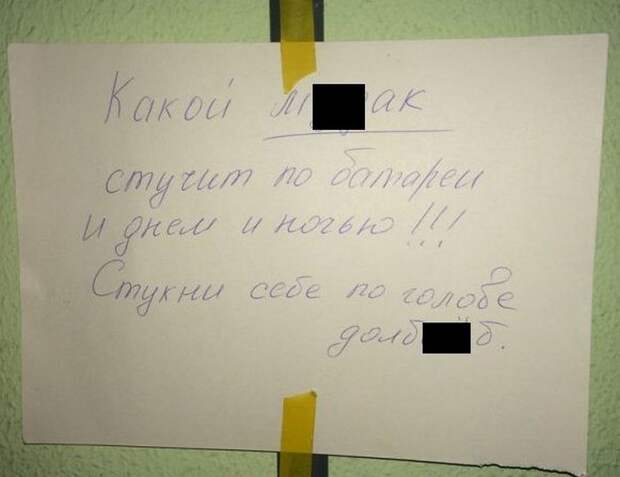 Какой
стучит по батареи
и днем и ночью!!!
Стукни себе по голове